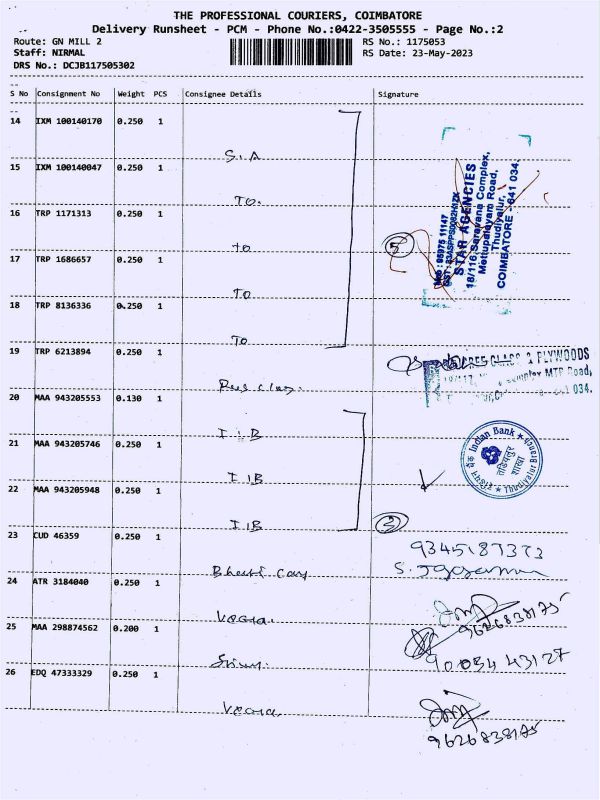 THE PROFESSIONAL COURIERS, COIMBATORE
Delivery Runsheet - PCM - Phone No.:0422-3505555 - Page No.:2
Route: GN MILL 2 RS No.: 1175053
Staff: NIRMAL RS Date: 23-May-2023
DRS No.: DCJB117505302
S No Consignment No Weight PCS Consignee Details Signature
14 IXM 100140170 0.250 1
S.A
15 IXM 100140047 0.250 1
TO.
16 TRP 1171313 0.250 1
TO
17 TRP 1686657 0.250 1
TO
18 TRP 8136336 0.250 1
TO
5
Mob : 95975 11147
STAR AGENCIES
18/116, Saravana Complex,
Mettupalayam Road,
Thudiyalur,
COIMBATORE - 641 034.
19 TRP 6213894 0.250 1
GLASS & PLYWOODS
Complex MTP Road,
034.
20 MAA 943205553 0.130 1
I.B
21 MAA 943205746 0.250 1
I.B
22 MAA 943205948 0.250 1
I.B
Indian Bank
Thudiyalur Branch
शाखा
3
23 CUD 46359 0.250 1
9345187373
24 ATR 3184040 0.250 1
Veera.
9626838175
25 MAA 298874562 0.200 1
26 EDQ 47333329 0.250 1
Veera
9626838175